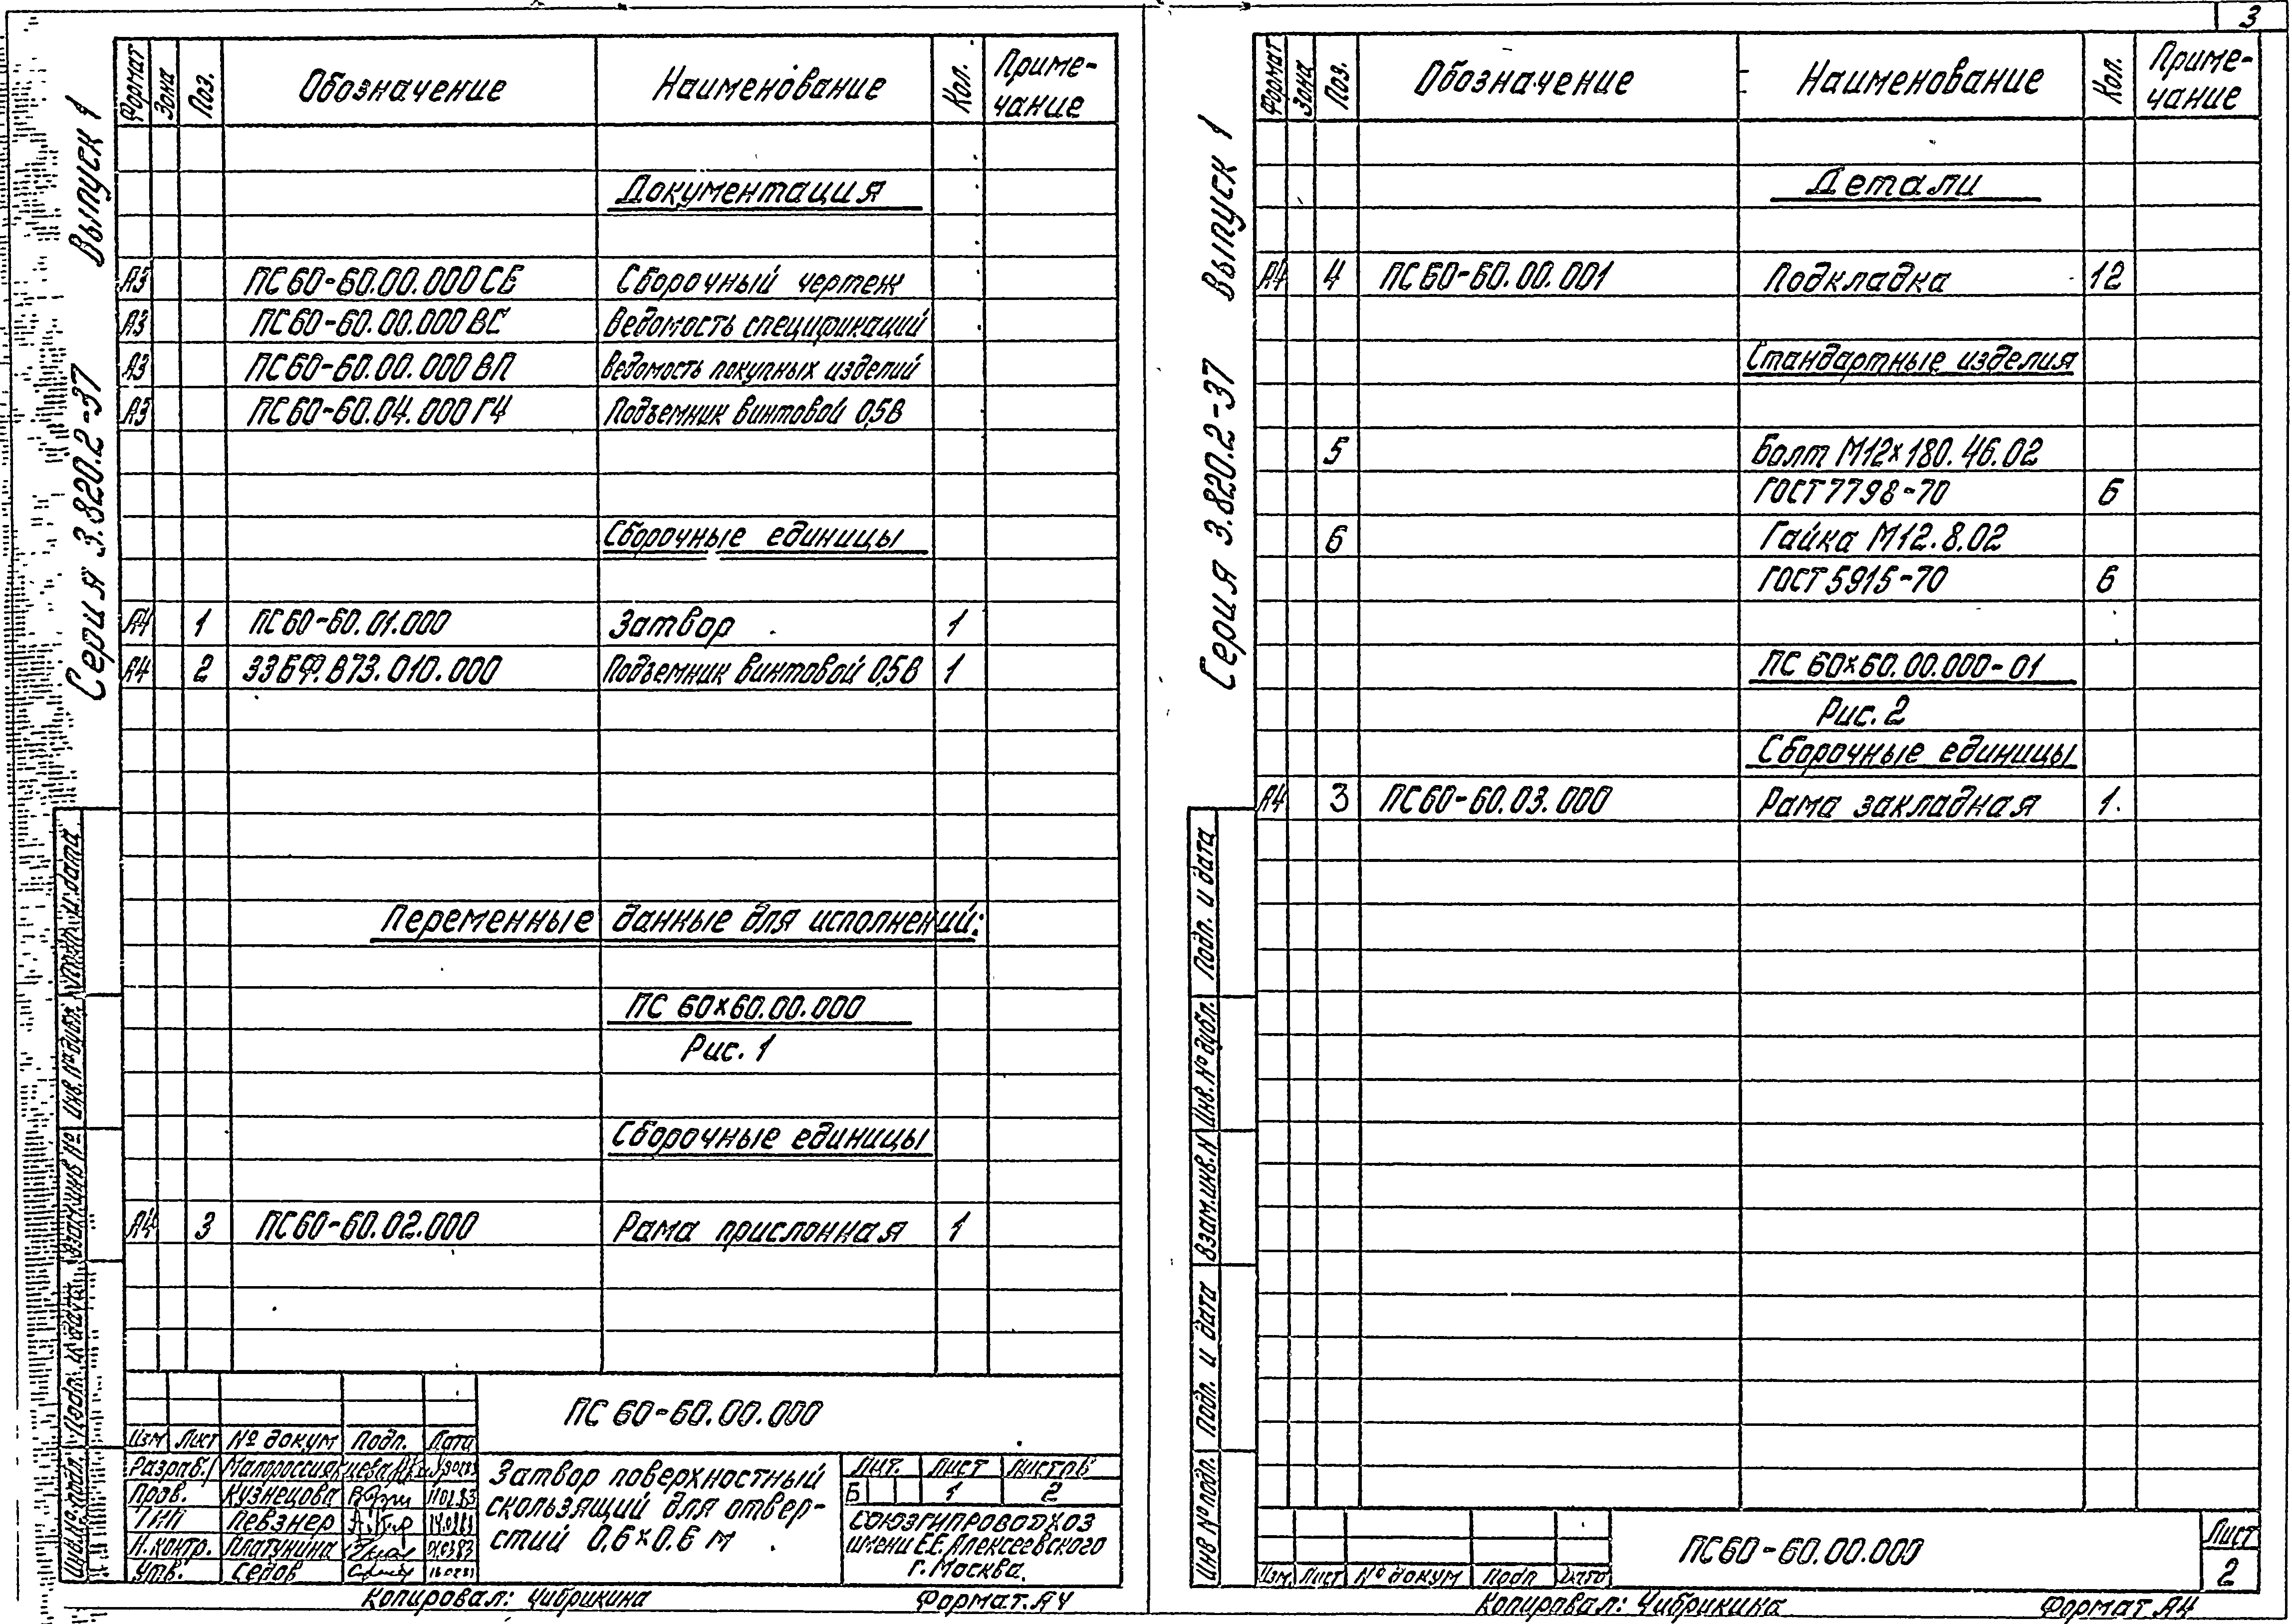 3
Серия 3.820.2-37 Выпуск 1
Формат Зона Поз. Обозначение Наименование Кол. Приме-
чание
Документация
А3 ПС60-60.00.000СБ Сборочный чертеж
А3 ПС60-60.00.000ВС Ведомость спецификаций
А3 ПС60-60.00.000ВП Ведомость покупных изделий
А3 ПС60-60.04.000ГЧ Подъемник винтовой 0,5В
Сборочные единицы
А4 1 ПС60-60.01.000 Затвор 1
А4 2 33БФ.В73.010.000 Подъемник винтовой 0,5В 1
Переменные данные для исполнений:
ПС 60х60.00.000
Рис. 1
Сборочные единицы
А4 3 ПС60-60.02.000 Рама прислонная 1
ПС 60-60.00.000
Изм Лист № докум Подп. Дата
Разраб.
Пров. Кузнецова 11.02.83
ГИП Певзнер
Н.контр. Платунина
Утв. Седов
Затвор поверхностный
скользящий для отвер-
стий 0,6х0.6 м
Лит. Лист Листов
Б 1 2
СОЮЗГИПРОВОДХОЗ
имени Е.Е. Алексеевского
г. Москва.
Инв.№ подл. Подп. и дата Взам.инв № Инв. № дубл. Подп. и дата
Копировал: Чибрикина Формат.А4
Серия 3.820.2-37 Выпуск 1
Формат Зона Поз. Обозначение Наименование Кол. Приме-
чание
Детали
А4 4 ПС60-60.00.001 Подкладка 12
Стандартные изделия
5 Болт М12х180.46.02
ГОСТ 7798-70 6
6 Гайка М12.8.02
ГОСТ 5915-70 6
ПС 60х60.00.000-01
Рис. 2
Сборочные единицы
А4 3 ПС60-60.03.000 Рама закладная 1.
Инв № подл. Подп. и дата Взам.инв.N Инв. № дубл. Подп. и дата
Изм. Лист № докум Подп Дата
ПС60-60.00.000
Лист
2
Копировал: Чибрикина Формат А4